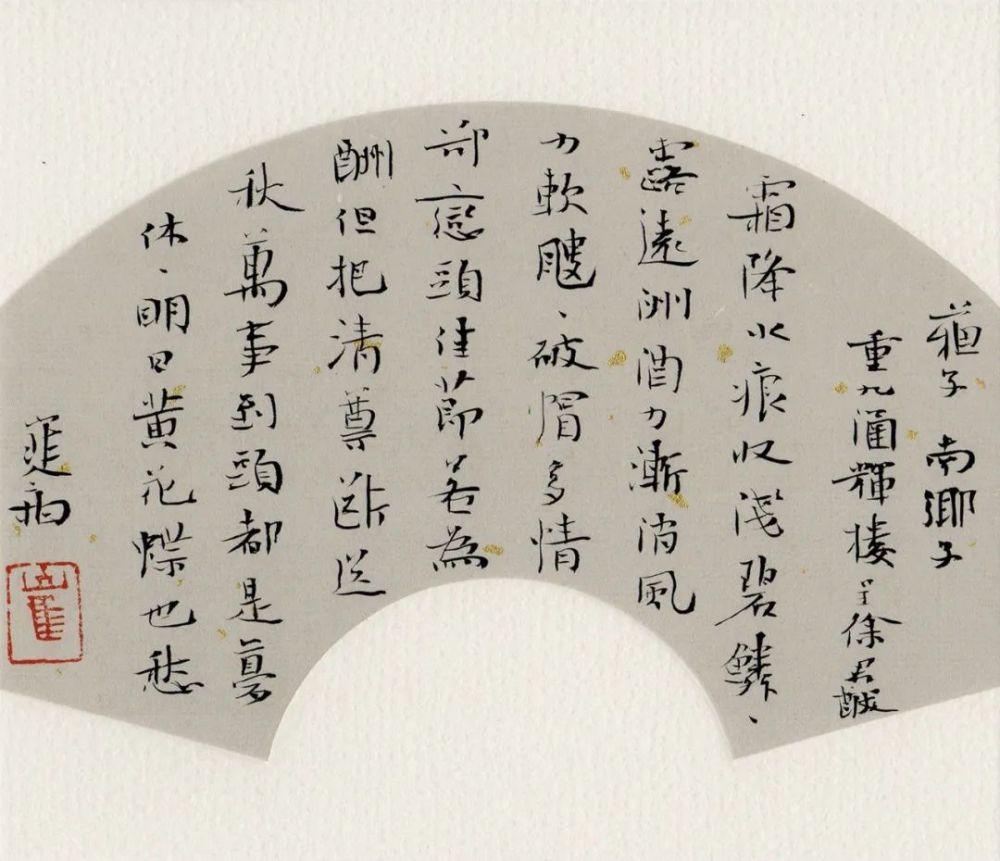 蘓子 南鄉子
重九涵輝樓呈徐君猷
霜降水痕收淺碧鱗、
露遠洲酒力漸消風
力軟颼、破帽多情
卻戀頭佳節若為
酬但把清尊斷送
秋萬事到頭都是夢
休、明日黃花蝶也愁